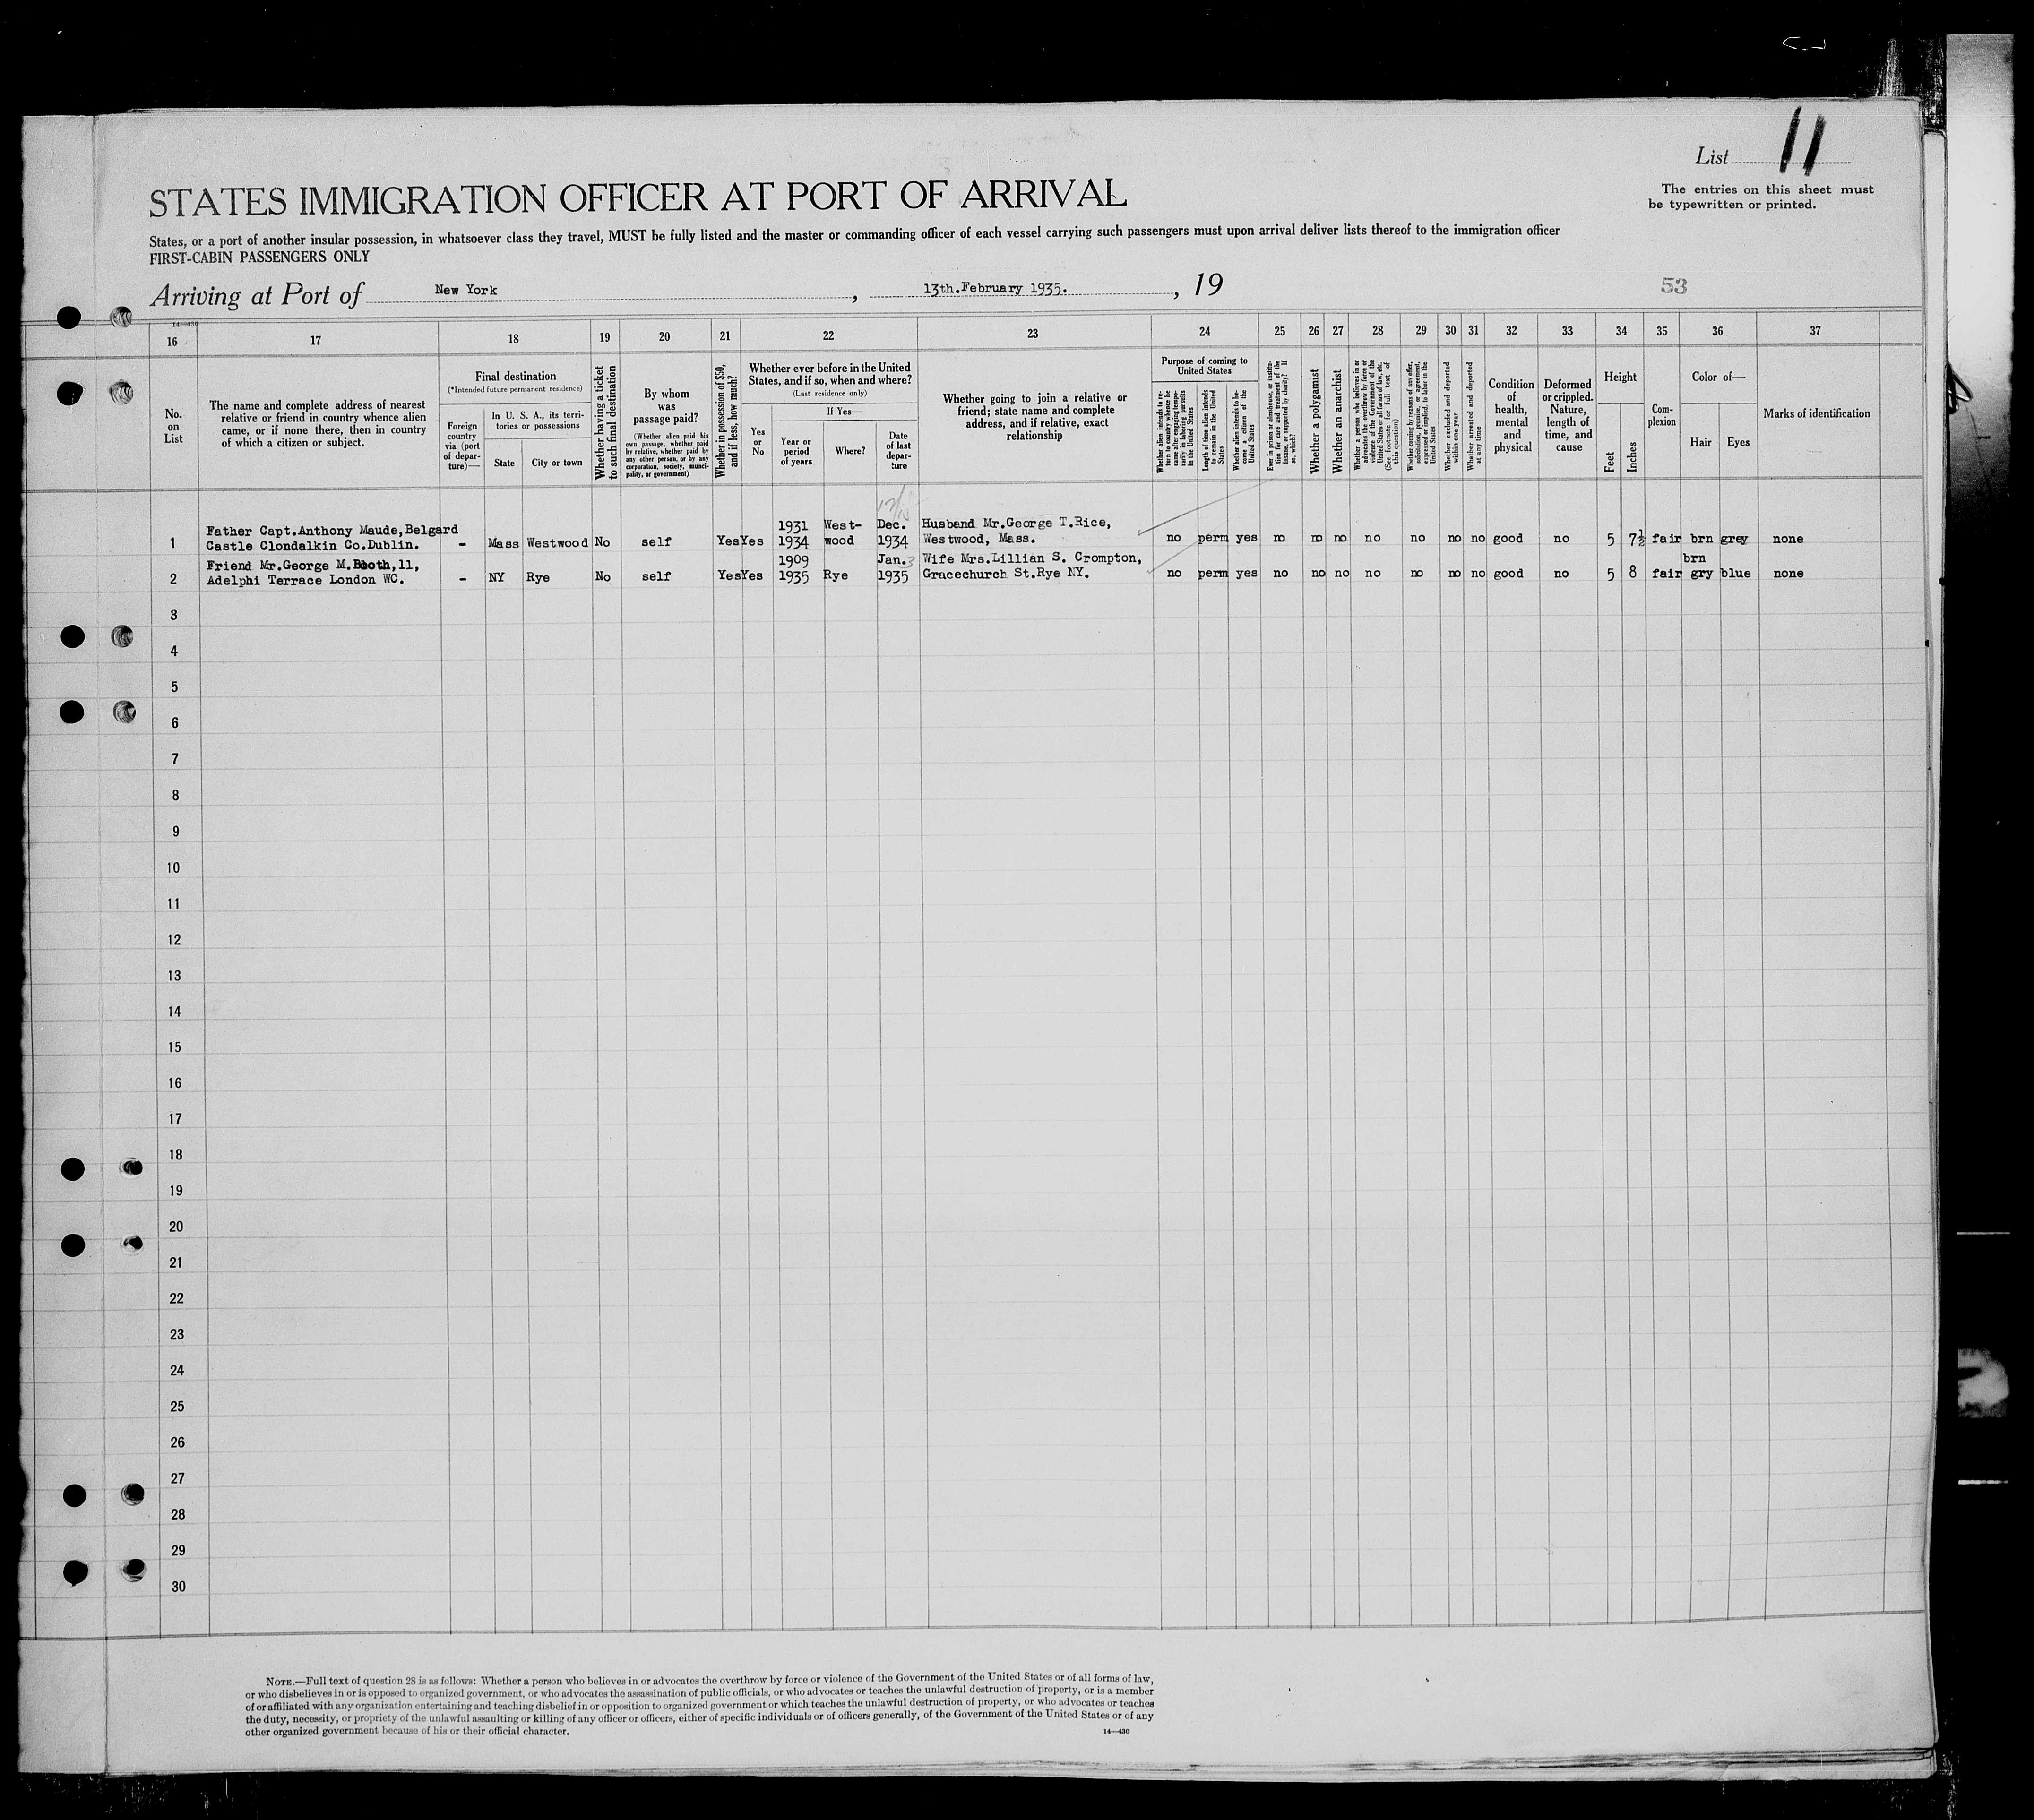 List 11
The entries on this sheet must
be typewritten or printed.
STATES IMMIGRATION OFFICER AT PORT OF ARRIVAL
States, or a port of another insular possession, in whatsoever class they travel, MUST be fully listed and the master or commanding officer of each vessel carrying such passengers must upon arrival deliver lists thereof to the immigration officer
FIRST-CABIN PASSENGERS ONLY
Arriving at Port of New York, 13th.February 1935., 19
53
14—430
16 17 18 19 20 21 22 23 24 25 26 27 28 29 30 31 32 33 34 35 36 37
No.
on
List
The name and complete address of nearest
relative or friend in country whence alien
came, or if none there, then in country
of which a citizen or subject.
Final destination
(*Intended future permanent residence)
Foreign
country
via (port
of depar-
ture)—
In U. S. A., its terri-
tories or possessions
State
City or town
Whether having a ticket
to such final destination
By whom
was
passage paid?
(Whether alien paid his
own passage, whether paid
by relative, whether paid by
any other person, or by any
corporation, society, munici-
pality, or government)
Whether in possession of $50,
and if less, how much?
Whether ever before in the United
States, and if so, when and where?
(Last residence only)
Yes
or
No
If Yes—
Year or
period
of years
Where?
Date
of last
depar-
ture
Whether going to join a relative or
friend; state name and complete
address, and if relative, exact
relationship
Purpose of coming to
United States
Whether alien intends to re-
turn to country whence he
came after engaging tempo-
rarily in laboring pursuits
in the United States
Length of time alien intends
to remain in the United
States
Whether alien intends to be-
come a citizen of the
United States
Ever in prison or almshouse, or institu-
tion for care and treatment of the
insane, or supported by charity? If
so, which?
Whether a polygamist
Whether an anarchist
Whether a person who believes in or
advocates the overthrow by force or
violence of the Government of the
United States or all forms of law, etc.
(See footnote for full text of
this question)
Whether coming by reasons of any offer,
solicitation, promise, or agreement,
expressed or implied, to labor in the
United States
Whether excluded and deported
within one year
Whether arrested and deported
at any time
Condition
of
health,
mental
and
physical
Deformed
or crippled.
Nature,
length of
time, and
cause
Height
Feet
Inches
Com-
plexion
Color of—
Hair
Eyes
Marks of identification
Father Capt.Anthony Maude,Belgard 1931 West- Dec. Husband Mr.George T.Rice,
1 Castle Clondalkin Co.Dublin. - Mass Westwood No self Yes Yes 1934 wood 1934 Westwood, Mass. no perm yes no no no no no no no good no 5 7½ fair brn grey none
Friend Mr.George M.Booth,11, 1909 Jan. Wife Mrs.Lillian S. Crompton, brn
2 Adelphi Terrace London WC. - NY Rye No self Yes Yes 1935 Rye 1935 Gracechurch St.Rye NY. no perm yes no no no no no no no good no 5 8 fair gry blue none
3
4
5
6
7
8
9
10
11
12
13
14
15
16
17
18
19
20
21
22
23
24
25
26
27
28
29
30
NOTE.—Full text of question 28 is as follows: Whether a person who believes in or advocates the overthrow by force or violence of the Government of the United States or of all forms of law,
or who disbelieves in or is opposed to organized government, or who advocates the assassination of public officials, or who advocates or teaches the unlawful destruction of property, or is a member
of or affiliated with any organization entertaining and teaching disbelief in or opposition to organized government or which teaches the unlawful destruction of property, or who advocates or teaches
the duty, necessity, or propriety of the unlawful assaulting or killing of any officer or officers, either of specific individuals or of officers generally, of the Government of the United States or of any
other organized government because of his or their official character.
14—430